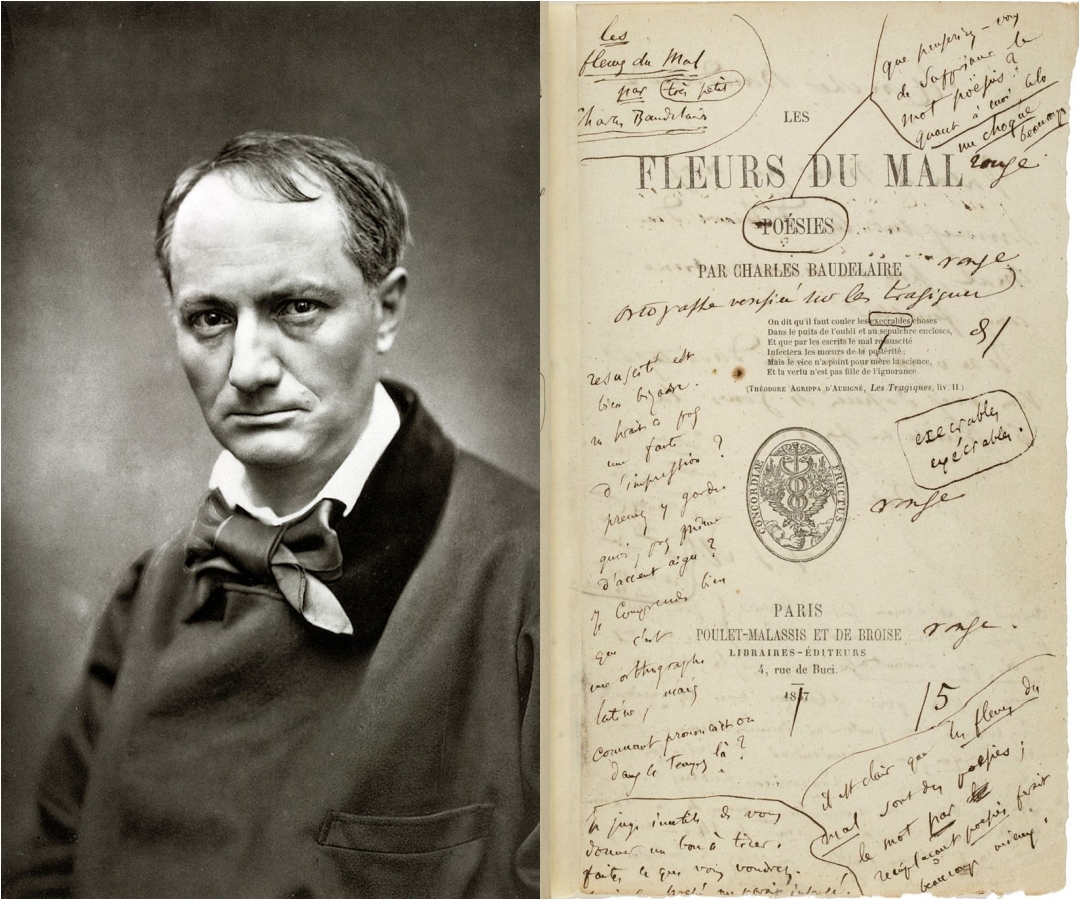 les
fleurs du Mal
par très petit
Charles Baudelaire
que penseriez-vous
de supprimer le
mot poësies ?
quant à moi cela
me choque
beaucoup
LES
FLEURS DU MAL
rouge.
POÉSIES
PAR CHARLES BAUDELAIRE
rouge
ortographe vérifiée sur les tragiques
On dit qu'il faut couler les execrables choses
Dans le puits de l'oubli et au sepulchre encloses,
Et que par les escrits le mal resuscité
Infectera les mœurs de la postérité;
Mais le vice n'a point pour mère la science,
Et la vertu n'est pas fille de l'ignorance.
(THÉODORE AGRIPPA D'AUBIGNÉ, Les Tragiques, liv. II.)
resuscité est
bien bizarre.
ne serait-ce pas
une faute
d'impression ?
prenez y garde
quoi, pas même
d'accent aigu ?
je comprends bien
que c'est
une orthographe
latine, mais
comment prononçait-on
dans le temps là ?
execrables
exécrables.
CONCORDIÆ FRUCTUS
rouge
PARIS
POULET-MALASSIS ET DE BROISE
rouge.
LIBRAIRES-ÉDITEURS
4, rue de Buci.
1857
/5
il est clair que les fleurs du
mal sont des poësies ;
le mot par
remplaçant poësies ferait
beaucoup mieux.
Je juge inutile de vous
donner un bon à tirer.
faites ce que vous voudrez.